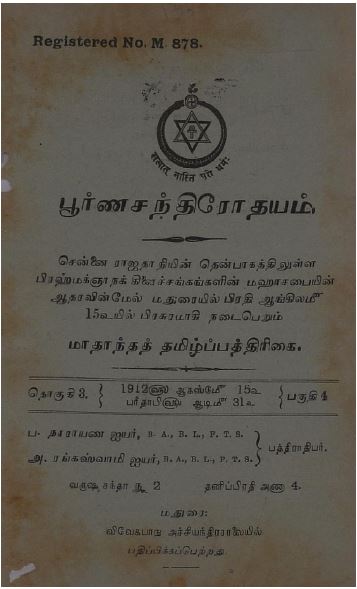 Registered No. M 878.
सत्यात् नास्ति परो धर्मः
பூர்ணசந்திரோதயம்.
சென்னை ராஜதாநியின் தென்பாகத்திலுள்ள
பிரஹ்மக்ஞாநக் கிளைச்சங்கங்களின் மஹாசபையின்
ஆதரவின்மேல் மதுரையில் பிரதி ஆங்கிலமீ
15உயில் பிரசுரமாகி நடைபெறும்
மாதாந்தத் தமிழ்ப்பத்திரிகை.
தொகுதி 3. } 1912௵ ஆகஸ்டுமீ 15உ } பகுதி 4
பரிதாபி௵ ஆடிமீ 31உ
ப. நாராயண ஐயர், B. A., B. L., F. T. S. } பத்திராதிபர்.
அ. ரங்கஸ்வாமி ஐயர், B. A., B. L., F. T. S.
வருஷ சந்தா ரூ 2 தனிப்பிரதி அணா 4.
மதுரை:
விவேகபாநு அச்சியந்திரசாலையில்
பதிப்பிக்கப்பெற்றது.